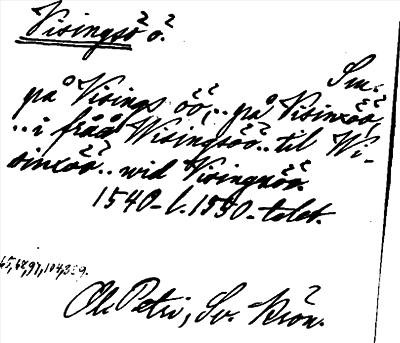 Visingsö ö.
Sm.
på Visings öö,.. på Visinxöö,
.. i frå Wisingsöö.. til Wi-
sinxöö.. wid Visingxöö.
1540-t. 1550-talet.
65, 68, 97, 104, 339.
Ol. Petri, Sv. Krön.